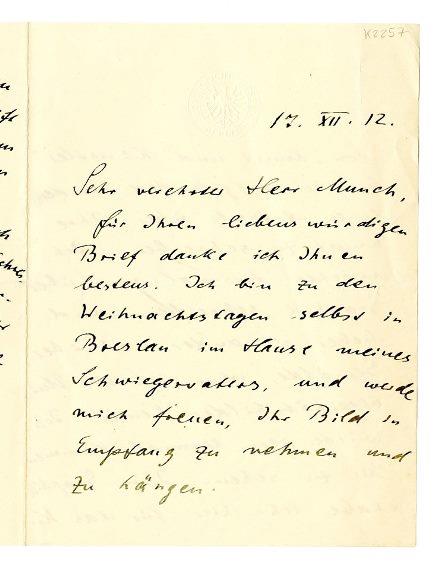 K2257
17. XII. 12.
Sehr verehrter Herr Munch,
für Ihren liebenswürdigen
Brief danke ich Ihnen
bestens. Ich bin zu den
Weihnachtstagen selbst in
Breslau im Hause meines
Schwiegervaters, und werde
mich freuen, Ihr Bild in
Empfang zu nehmen und
zu hängen.